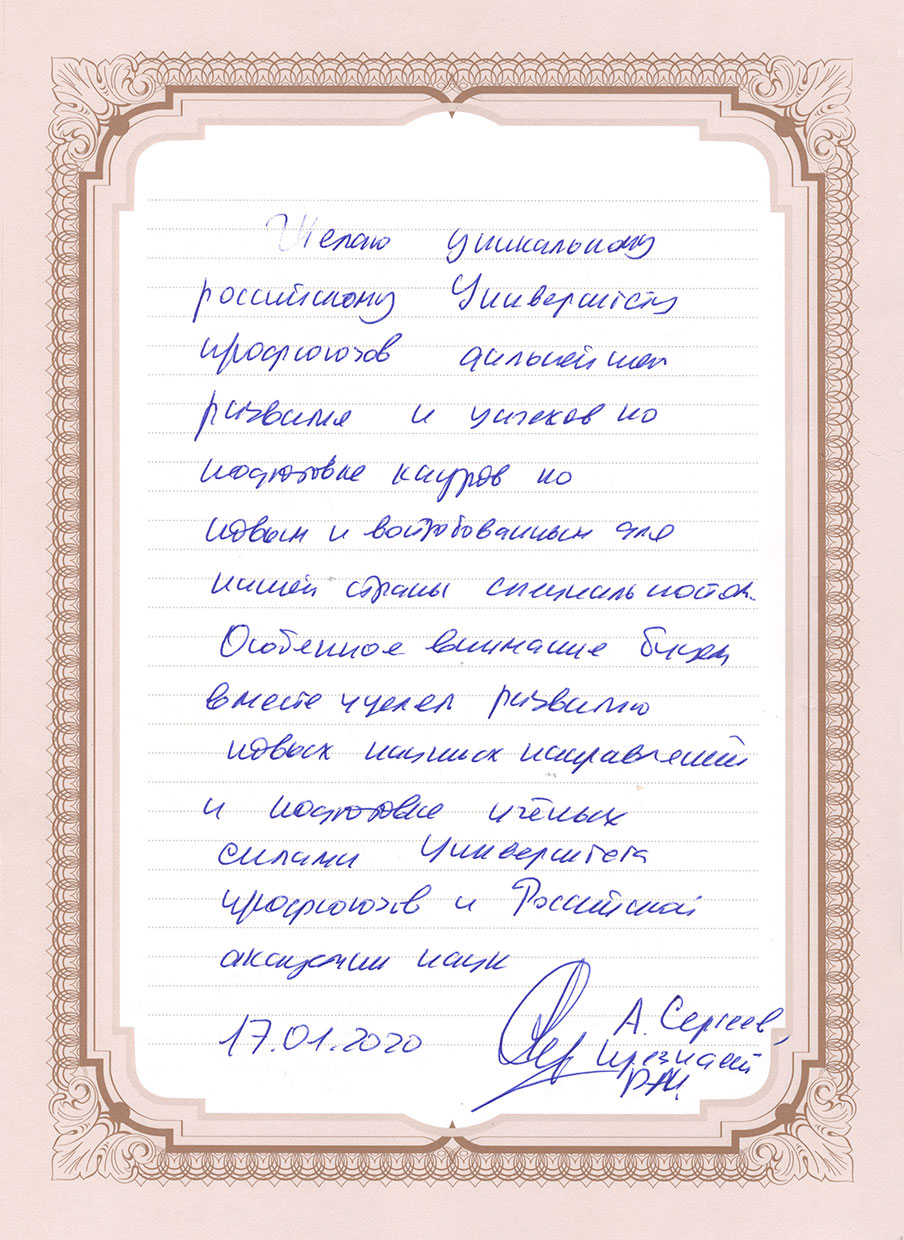 Желаю уникальному
российскому Университету
профсоюзов дальнейшего
развития и успехов по
подготовке кадров по
новым и востребованным для
нашей страны специальностям.
Особенное внимание будем
вместе уделять развитию
новых научных направлений
и подготовке учёных
силами Университета
профсоюзов и Российской
академии наук
17.01.2020
А. Сергеев,
президент
РАН.